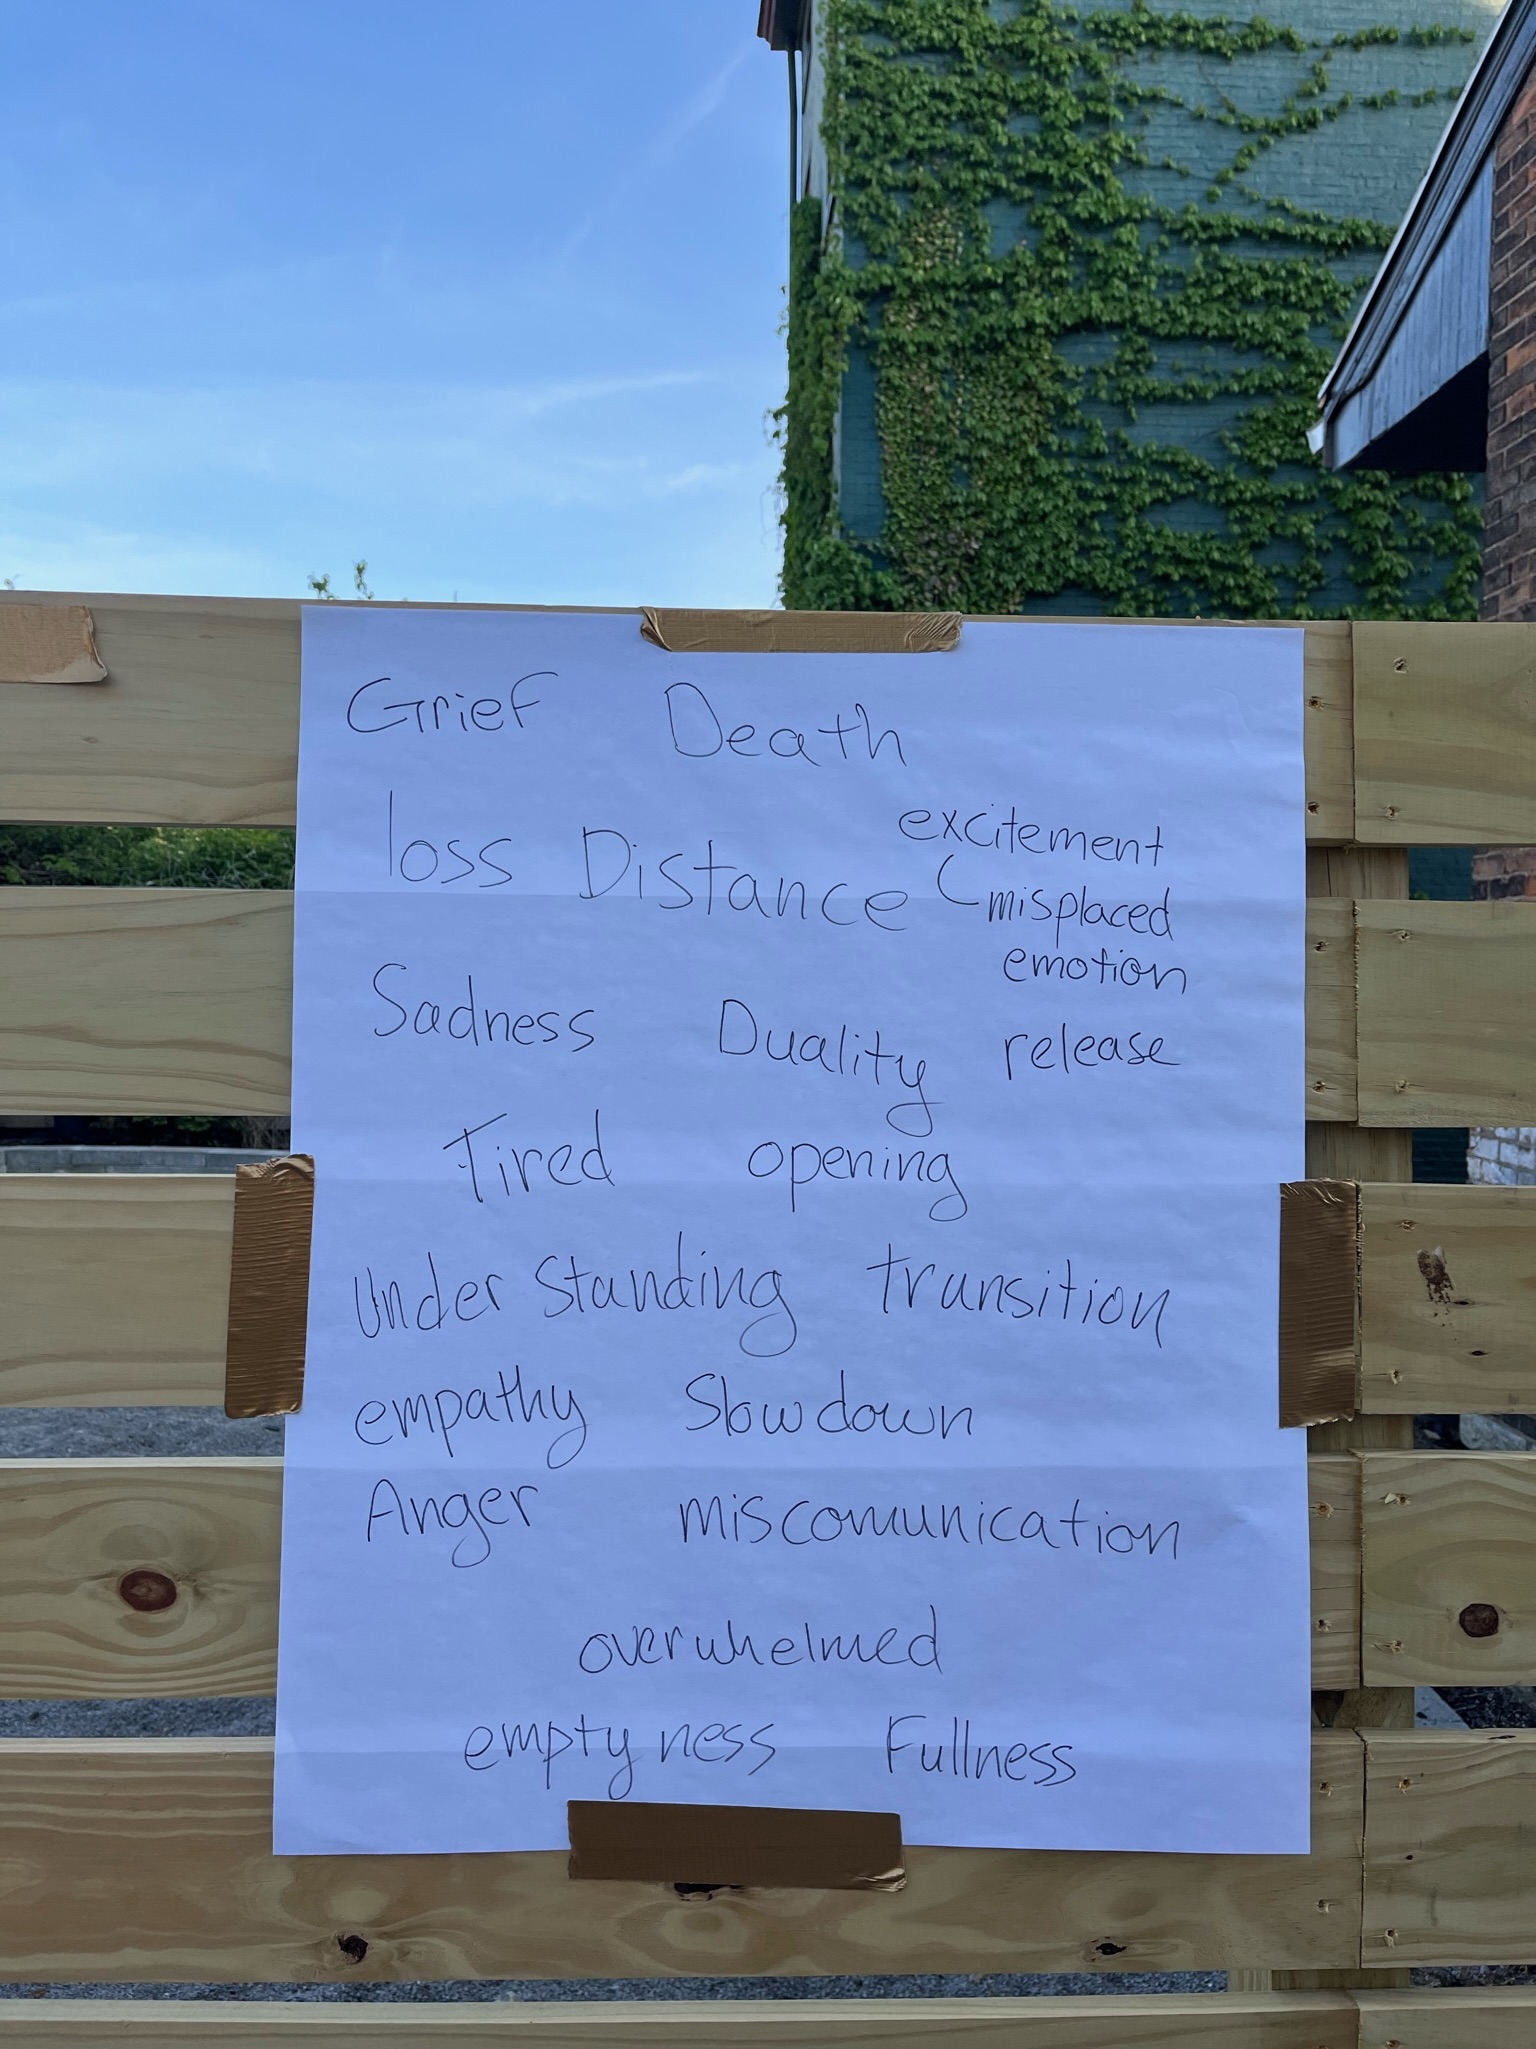 Grief Death
excitement
loss Distance misplaced
emotion
Sadness Duality release
Tired opening
Under Standing transition
empathy Slow down
Anger miscomunication
overwhelmed
emptyness Fullness